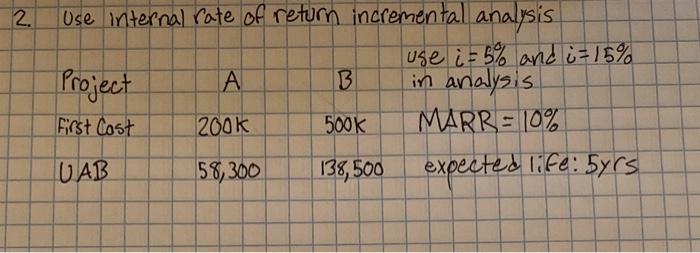 2. Use internal rate of return incremental analysis
use i = 5% and i = 15%
Project A B in analysis
First Cost 200K 500K MARR = 10%
UAB 58,300 138,500 expected life: 5yrs